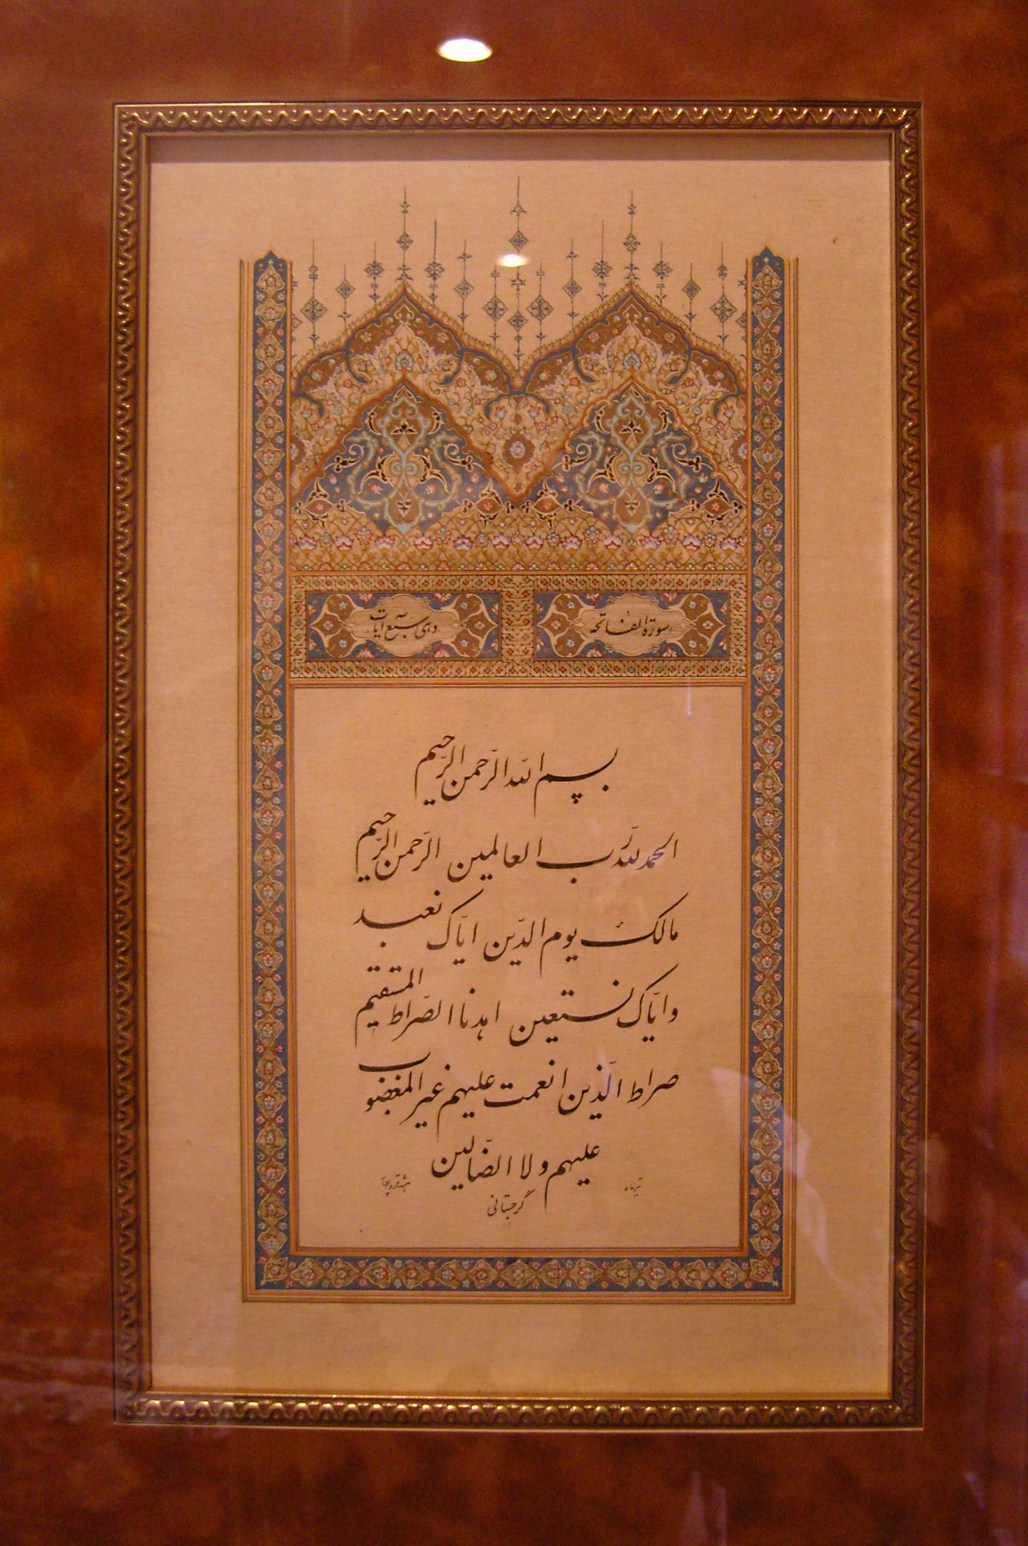 سورة الفاتحة
وهی سبع آیات
بسم الله الرّحمن الرّحیم
الحمد لله ربّ العالمین الرّحمن الرّحیم
مالک یوم الدّین ایّاک نعبد
وایّاک نستعین اهدنا الصّراط المستقیم
صراط الّذین انعمت علیهم غیر المغضوب
علیهم ولا الضّالین
تیرماه